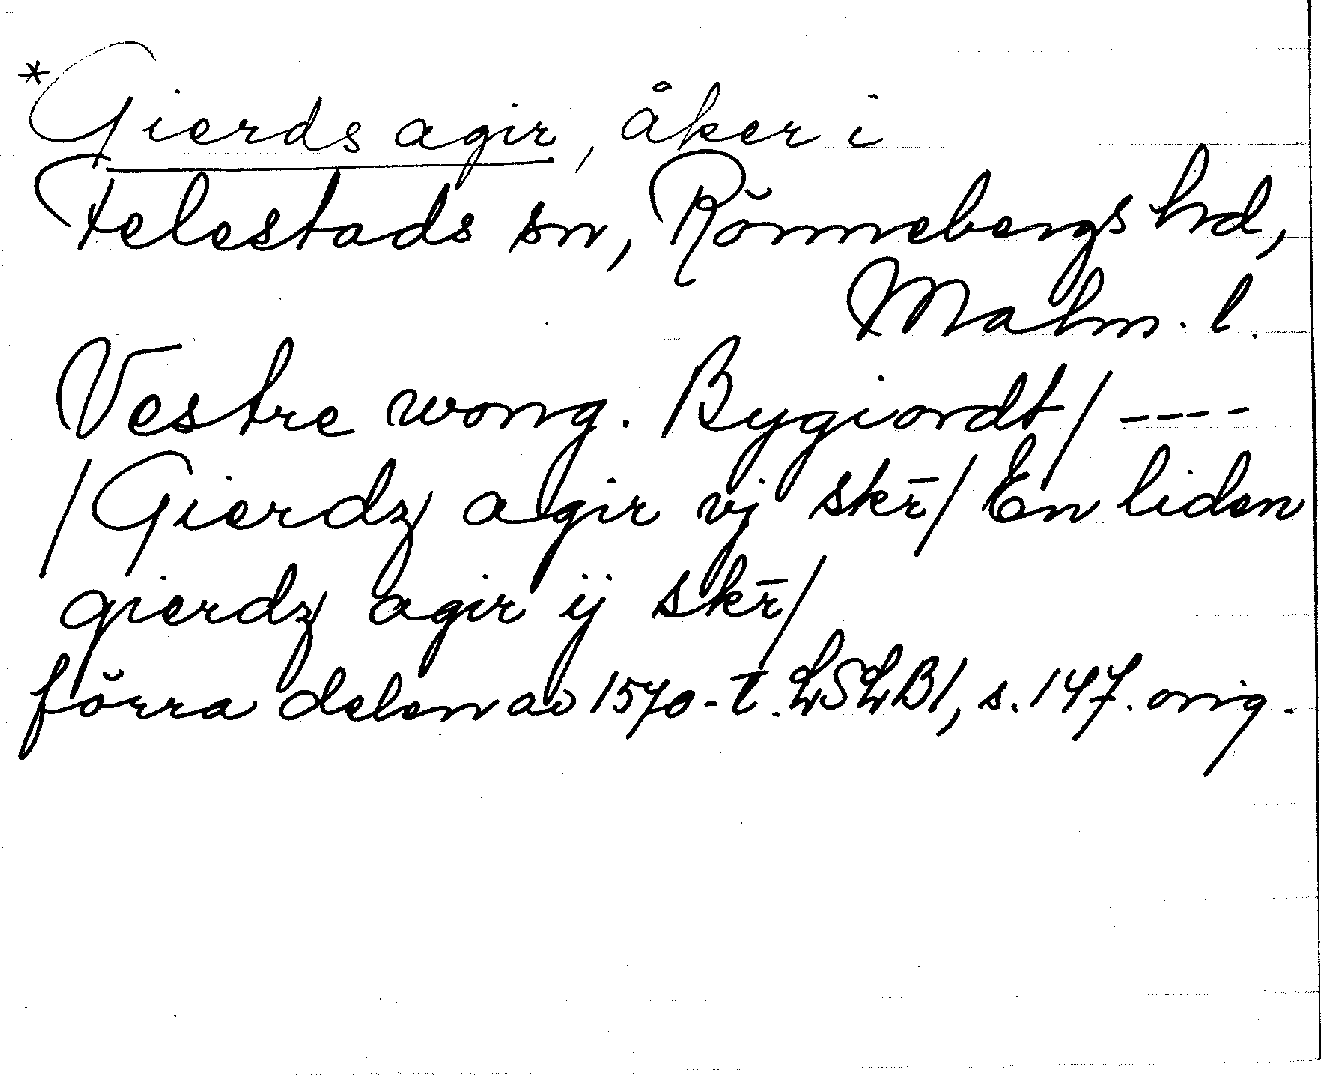 *Gierds agir, åker i
Felestads sn, Rönnebergs hd,
Malm. l.
Vestre wong. Bygiordt/ ----
/Gierdz agir vj skr̄/ En liden
gierdz agir ij skr̄/
förra delen av 1570-t. LSLB1, s. 147. orig.